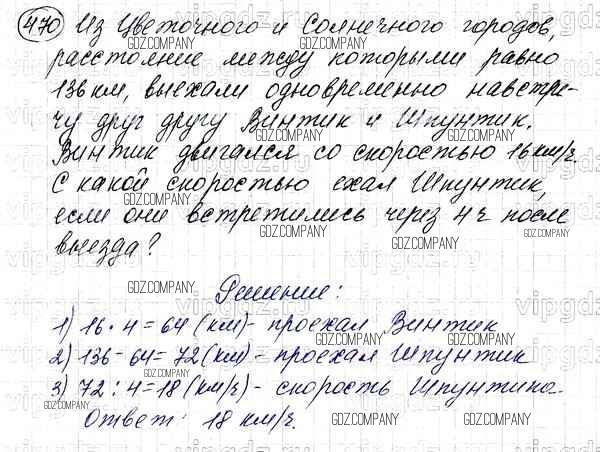 470 Из Цветочного и Солнечного городов,
расстояние между которыми равно
136 км, выехали одновременно навстре-
чу друг другу Винтик и Шпунтик.
Винтик двигался со скоростью 16 км/ч.
С какой скоростью ехал Шпунтик,
если они встретились через 4 ч после
выезда?
Решение:
1) 16 · 4 = 64 (км) - проехал Винтик
2) 136 - 64 = 72 (км) - проехал Шпунтик
3) 72 : 4 = 18 (км/ч) - скорость Шпунтика.
Ответ: 18 км/ч.
GDZ.COMPANY
vipgdz